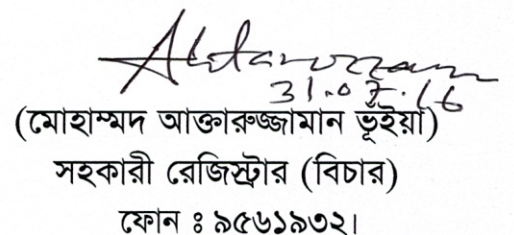 Aktaruzzam
31.07.16
(মোহাম্মদ আক্তারুজ্জামান ভূঁইয়া)
সহকারী রেজিস্ট্রার (বিচার)
ফোন ঃ ৯৫৬১৯৩২।